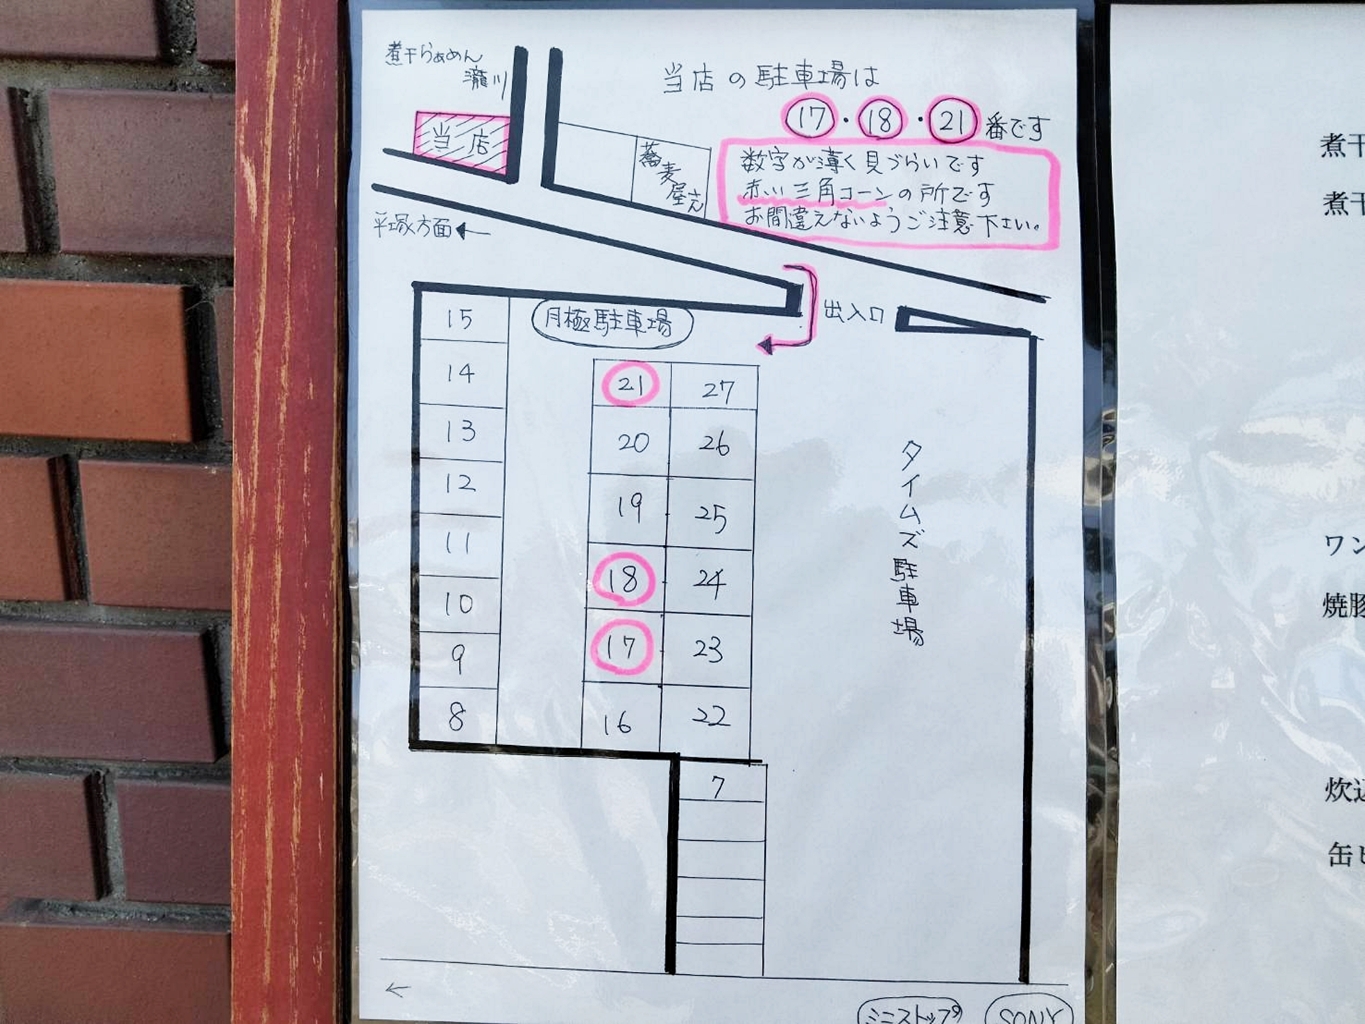 煮干らぁめん
瀧川
当店
当店の駐車場は
17・18・21番です
数字が薄く見づらいです
赤い三角コーンの所です
お間違えないようご注意下さい。
蕎麦
屋さん
平塚方面←
出入口
月極駐車場
15
14
13
12
11
10
9
8
21 27
20 26
19 25
18 24
17 23
16 22
7
タイムズ駐車場
←
ミニストップ
SONY
煮干
煮干
ワン
焼豚
炊込
缶ビ